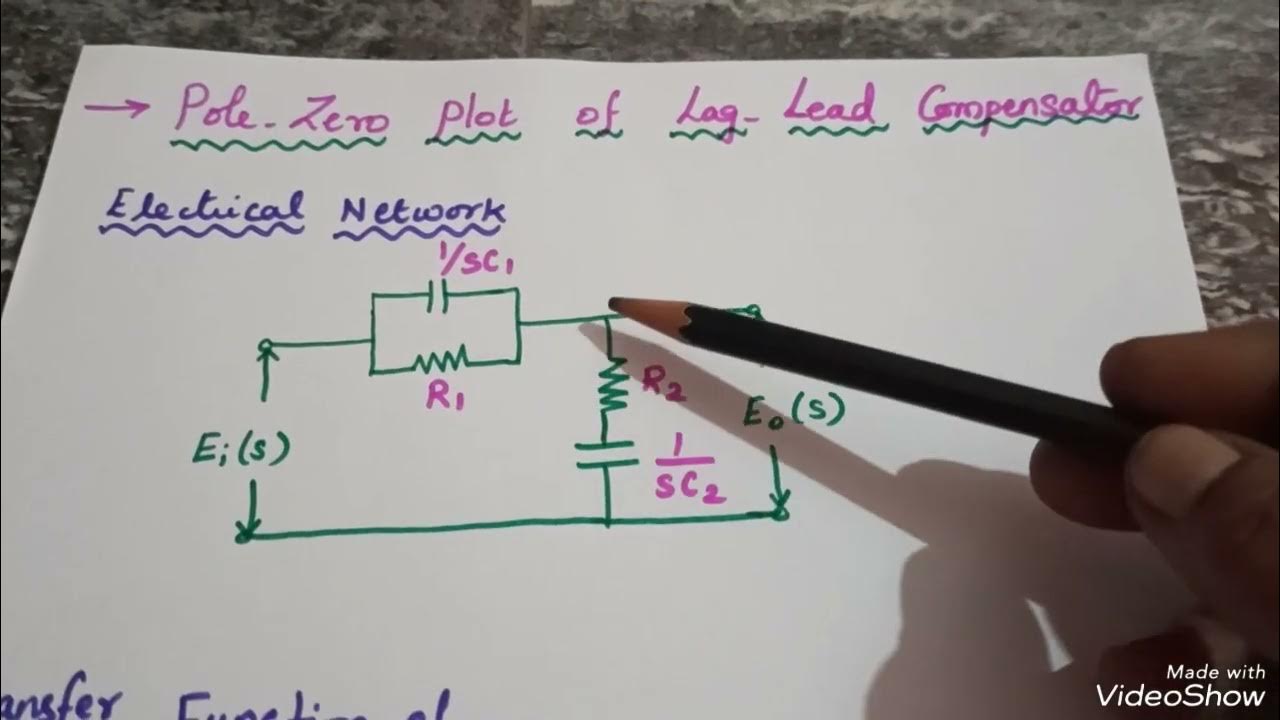 → Pole-Zero Plot of Lag-Lead Compensator
Electrical Network
1/SC₁
R₁
R₂
Eᵢ(s)
E₀(s)
1/SC₂
ansfer Function of
Made with
VideoShow